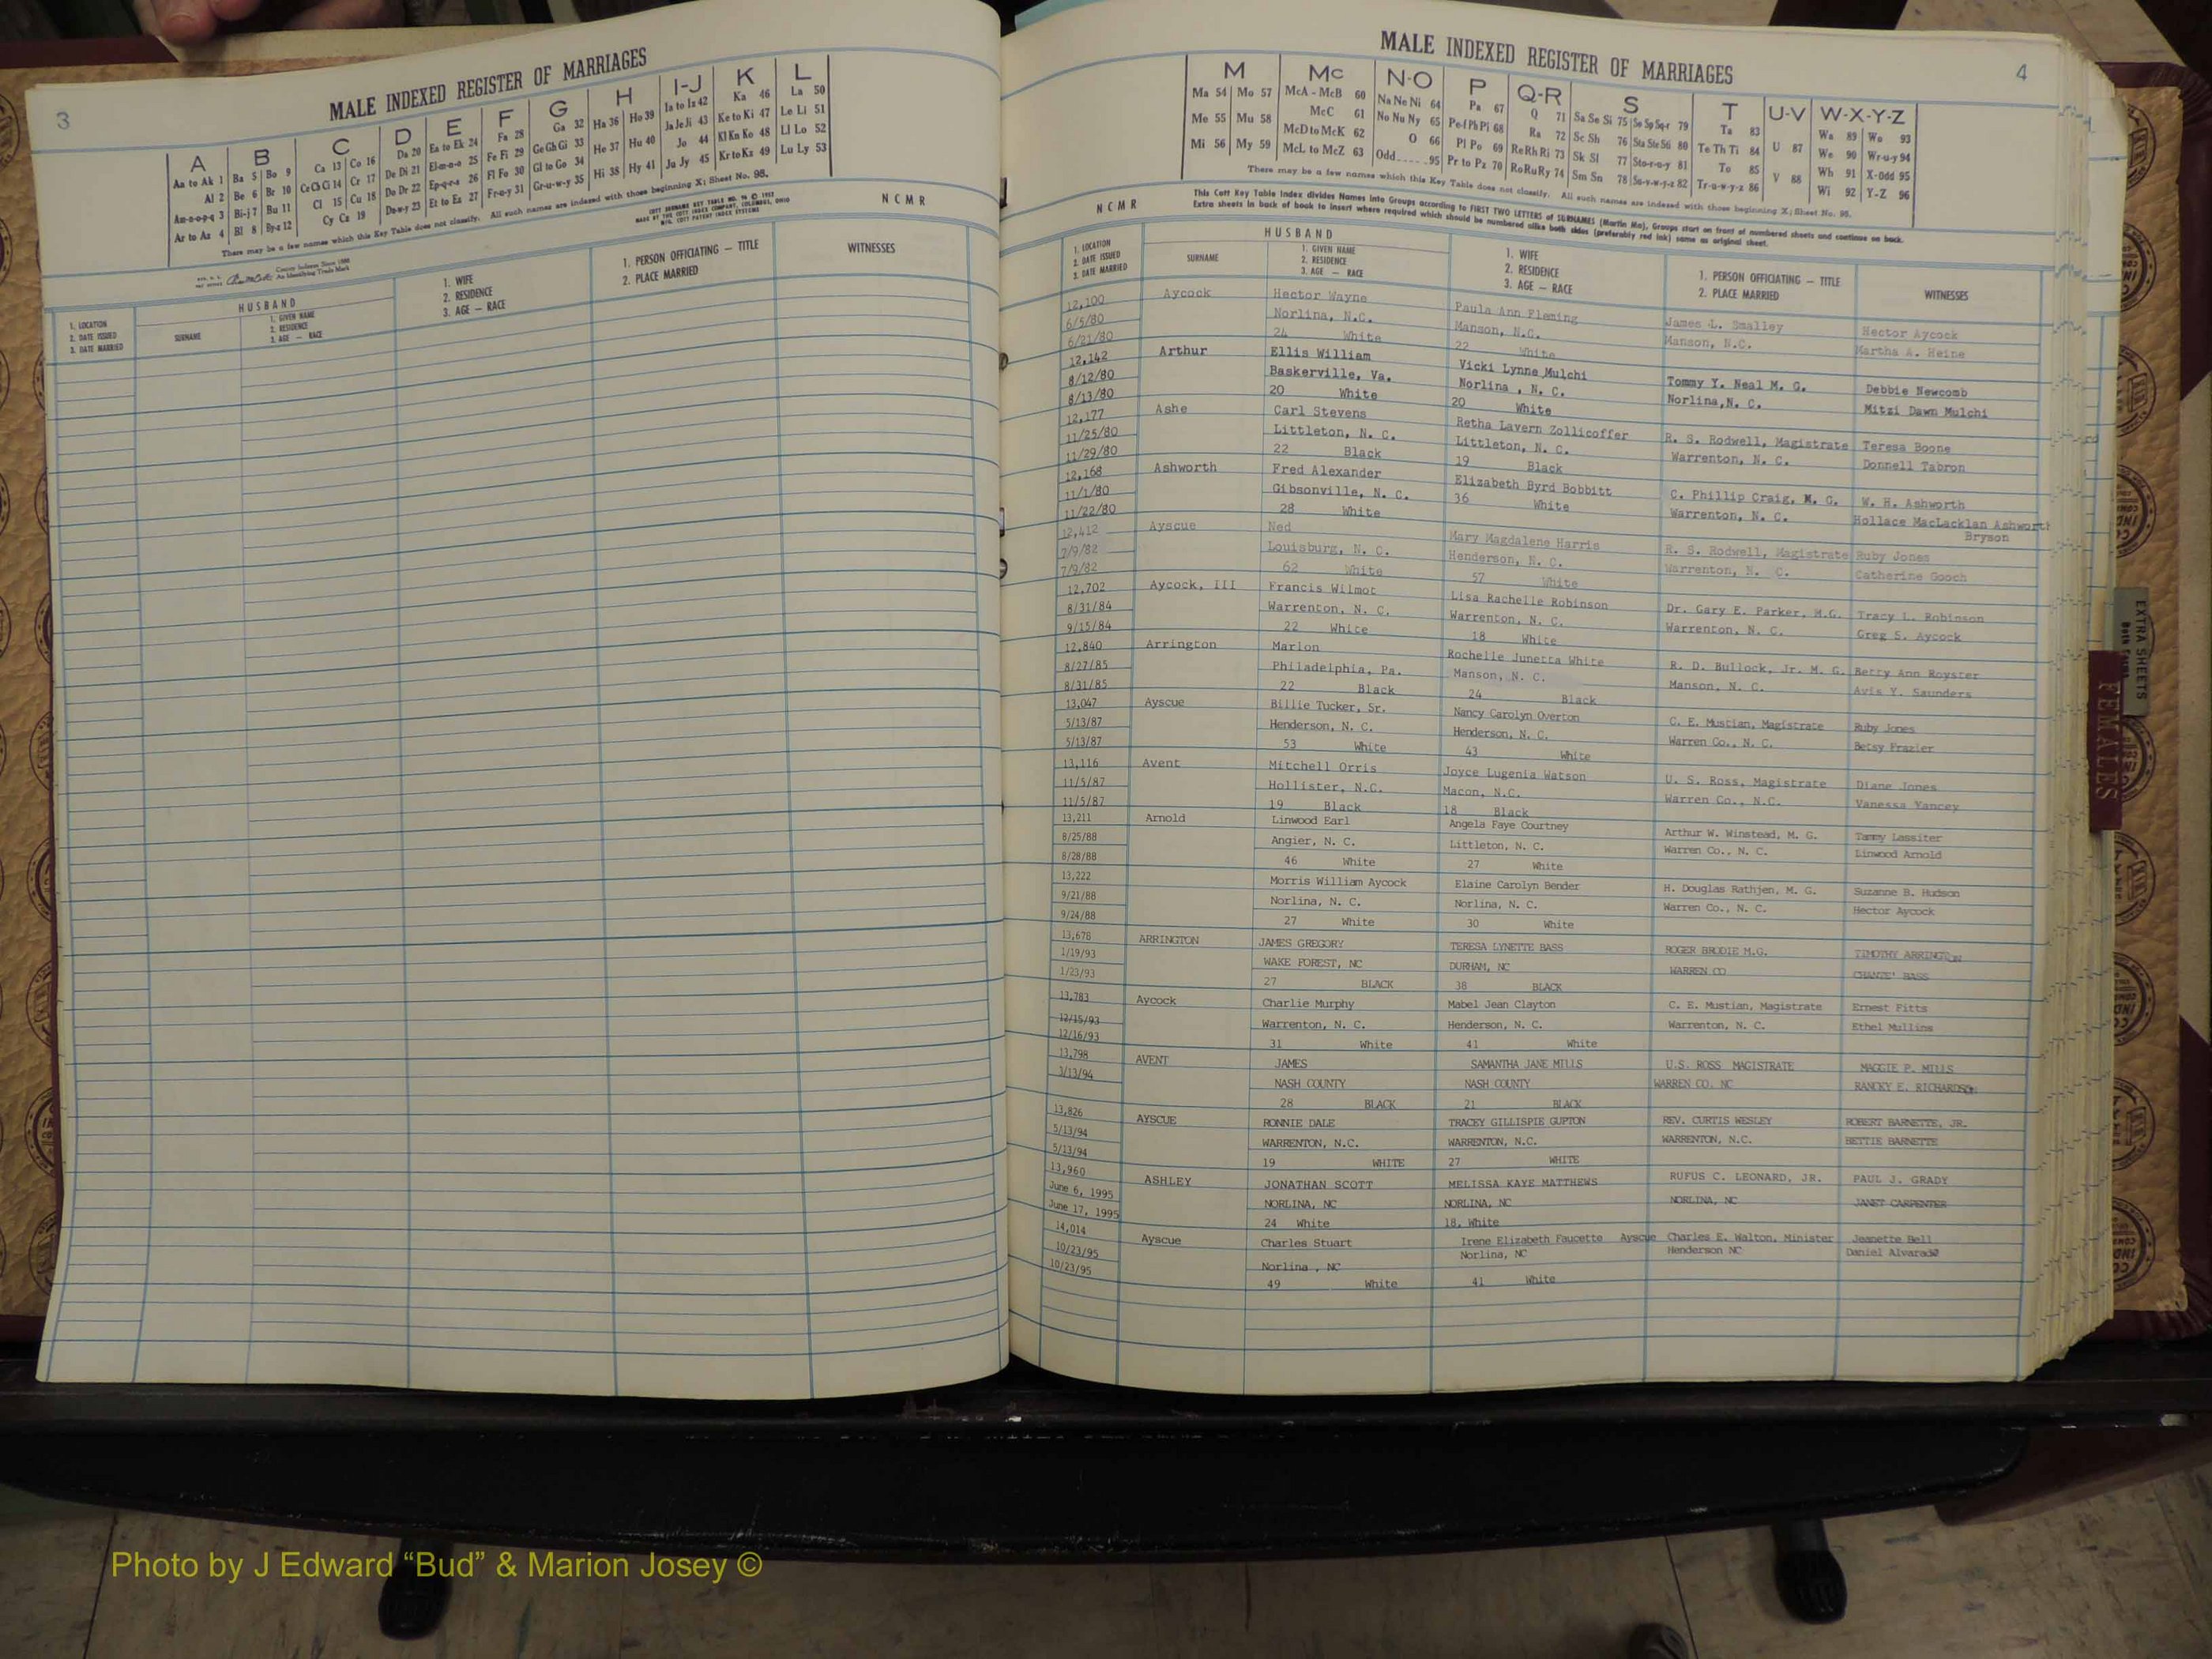 3
MALE INDEXED REGISTER OF MARRIAGES
A B C D E F G H I-J K L
Aa to Ak 1 Ba 5 Bo 9 Ca 13 Co 16 Da 20 Ea to Ek 24 Fa 28 Ga 32 Ha 36 Ho 39 Ia to Iz 42 Ka 46 La 50
Al 2 Be 6 Br 10 Ce Ch Ci 14 Cr 17 De Di 21 El-m-n-o 25 Fe Fi 29 Ge Gh Gi 33 He 37 Hu 40 Ja Je Ji 43 Ke to Ki 47 Le Li 51
Am-n-o-p-q 3 Bi-j 7 Bu 11 Cl 15 Cu 18 Do Dr 22 Ep-q-r-s 26 Fl Fo 30 Gl to Go 34 Hi 38 Hy 41 Jo 44 Kl Kn Ko 48 Ll Lo 52
Ar to Az 4 Bl 8 By-z 12 Cy Cz 19 Du-w-y 23 Et to Ez 27 Fr-u-y 31 Gr-u-w-y 35 Ju Jy 45 Kr to Kz 49 Lu Ly 53
There may be a few names which this Key Table does not classify. All such names are indexed with those beginning X; Sheet No. 98.
N C M R
HUSBAND
1. LOCATION
2. DATE ISSUED
3. DATE MARRIED
SURNAME
1. GIVEN NAME
2. RESIDENCE
3. AGE — RACE
1. WIFE
2. RESIDENCE
3. AGE — RACE
1. PERSON OFFICIATING — TITLE
2. PLACE MARRIED
WITNESSES
MALE INDEXED REGISTER OF MARRIAGES
4
M Mc N-O P Q-R S T U-V W-X-Y-Z
Ma 54 Mo 57 McA - McB 60 Na Ne Ni 64 Pa 67 Q 71 Sa Se Si 75 So Sp Sq-r 79 Ta 83 Wa 89 Wo 93
Me 55 Mu 58 McC 61 No Nu Ny 65 Pe-f Ph Pi 68 Ra 72 Sc Sh 76 Sta Ste Sti 80 Te Th Ti 84 U 87 We 90 Wr-u-y 94
Mi 56 My 59 McD to McK 62 O 66 Pl Po 69 Re Rh Ri 73 Sk Sl 77 Sto-r-u-y 81 To 85 V 88 Wh 91 X-odd 95
McL to McZ 63 Odd 95 Pr to Pz 70 Ro Ru Ry 74 Sm Sn 78 Su-v-w-y-z 82 Tr-u-w-y-z 86 Wi 92 Y-Z 96
There may be a few names which this Key Table does not classify. All such names are indexed with those beginning X; Sheet No. 98.
This Cott Key Table Index divides Names into Groups according to FIRST TWO LETTERS of SURNAMES (Martin Ma), Groups start on front of numbered sheets and continue on back.
Extra sheets in back of book to insert where required which should be numbered alike both sides (preferably red ink) same as original sheet.
N C M R
HUSBAND
1. LOCATION
2. DATE ISSUED
3. DATE MARRIED
SURNAME
1. GIVEN NAME
2. RESIDENCE
3. AGE — RACE
1. WIFE
2. RESIDENCE
3. AGE — RACE
1. PERSON OFFICIATING — TITLE
2. PLACE MARRIED
WITNESSES
12,100 Aycock Hector Wayne Paula Ann Fleming James L. Smalley Hector Aycock
6/5/80 Norlina, N.C. Manson, N.C. Manson, N.C. Martha A. Heine
6/21/80 24 White 22 White
12,142 Arthur Ellis William Vicki Lynne Mulchi Tommy Y. Neal M. G. Debbie Newcomb
8/12/80 Baskerville, Va. Norlina , N. C. Norlina,N. C. Mitzi Dawn Mulchi
8/13/80 20 White 20 White
12,177 Ashe Carl Stevens Retha Lavern Zollicoffer R. S. Rodwell, Magistrate Teresa Boone
11/25/80 Littleton, N. C. Littleton, N. C. Warrenton, N. C. Donnell Tabron
11/29/80 22 Black 19 Black
12,168 Ashworth Fred Alexander Elizabeth Byrd Bobbitt C. Phillip Craig, M. G. W. H. Ashworth
11/1/80 Gibsonville, N. C. 36 White Warrenton, N. C. Hollace MacLacklan Ashworth
11/22/80 28 White Bryson
12,412 Ayscue Ned Mary Magdalene Harris R. S. Rodwell, Magistrate Ruby Jones
7/9/82 Louisburg, N. C. Henderson, N. C. Warrenton, N. C. Catherine Gooch
7/9/82 62 White 57 White
12,702 Aycock, III Francis Wilmot Lisa Rachelle Robinson Dr. Gary E. Parker, M.G. Tracy L. Robinson
8/31/84 Warrenton, N. C. Warrenton, N. C. Warrenton, N. C. Greg S. Aycock
9/15/84 22 White 18 White
12,840 Arrington Marlon Rochelle Junetta White R. D. Bullock, Jr. M. G. Betty Ann Royster
8/27/85 Philadelphia, Pa. Manson, N. C. Manson, N. C. Avis Y. Saunders
8/31/85 22 Black 24 Black
13,047 Ayscue Billie Tucker, Sr. Nancy Carolyn Overton C. E. Mustian, Magistrate Ruby Jones
5/13/87 Henderson, N. C. Henderson, N. C. Warren Co., N. C. Betsy Frazier
5/13/87 53 White 43 White
13,116 Avent Mitchell Orris Joyce Lugenia Watson U. S. Ross, Magistrate Diane Jones
11/5/87 Hollister, N.C. Macon, N.C. Warren Co., N.C. Vanessa Yancey
11/5/87 19 Black 18 Black
13,211 Arnold Linwood Earl Angela Faye Courtney Arthur W. Winstead, M. G. Tammy Lassiter
8/25/88 Angier, N. C. Littleton, N. C. Warren Co., N. C. Linwood Arnold
8/28/88 46 White 27 White
13,222 Morris William Aycock Elaine Carolyn Bender H. Douglas Rathjen, M. G. Suzanne B. Hudson
9/21/88 Norlina, N. C. Norlina, N. C. Warren Co., N. C. Hector Aycock
9/24/88 27 White 30 White
13,678 ARRINGTON JAMES GREGORY TERESA LYNETTE BASS ROGER BRODIE M.G. TIMOTHY ARRINGTON
1/19/93 WAKE FOREST, NC DURHAM, NC WARREN CO CHANTE' BASS
1/23/93 27 BLACK 38 BLACK
13,783 Aycock Charlie Murphy Mabel Jean Clayton C. E. Mustian, Magistrate Ernest Fitts
12/15/93 Warrenton, N. C. Henderson, N. C. Warrenton, N. C. Ethel Mullins
12/16/93 31 White 41 White
13,798 AVENT JAMES SAMANTHA JANE MILLS U.S. ROSS MAGISTRATE MAGGIE P. MILLS
3/13/94 NASH COUNTY NASH COUNTY WARREN CO. NC RANCKY E. RICHARDSON
28 BLACK 21 BLACK
13,826 AYSCUE RONNIE DALE TRACEY GILLISPIE GUPTON REV. CURTIS WESLEY ROBERT BARNETTE, JR.
5/13/94 WARRENTON, N.C. WARRENTON, N.C. WARRENTON, N.C. BETTIE BARNETTE
5/13/94 19 WHITE 27 WHITE
13,960 ASHLEY JONATHAN SCOTT MELISSA KAYE MATTHEWS RUFUS C. LEONARD, JR. PAUL J. GRADY
June 6, 1995 NORLINA, NC NORLINA, NC NORLINA, NC JANET CARPENTER
June 17, 1995 24 White 18, White
14,014 Ayscue Charles Stuart Irene Elizabeth Faucette Ayscue Charles E. Walton, Minister Jeanette Bell
10/23/95 Norlina , NC Norlina, NC Henderson NC Daniel Alvarado
10/23/95 49 White 41 White
EXTRA SHEETS
FEMALES
Photo by J Edward “Bud” & Marion Josey ©